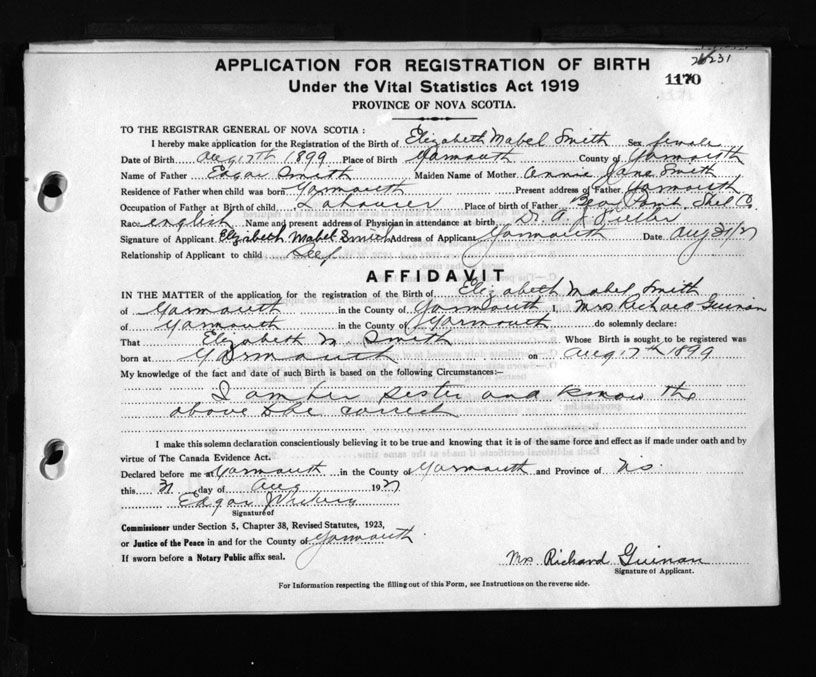 26231
APPLICATION FOR REGISTRATION OF BIRTH
1170
Under the Vital Statistics Act 1919
PROVINCE OF NOVA SCOTIA.
TO THE REGISTRAR GENERAL OF NOVA SCOTIA :
I hereby make application for the Registration of the Birth of Elizabeth Mabel Smith Sex female
Date of Birth Aug 17th 1899 Place of Birth Yarmouth County of Yarmouth
Name of Father Edgar Smith Maiden Name of Mother Annie Jane Smith
Residence of Father when child was born Yarmouth Present address of Father Yarmouth
Occupation of Father at Birth of child Labourer Place of birth of Father Bear Point Shel Co
Race english Name and present address of Physician in attendance at birth Dr. A. J Fuller
Signature of Applicant Elizibeth Mabel Smith Address of Applicant Yarmouth Date Aug 31/37
Relationship of Applicant to child Self
AFFIDAVIT
IN THE MATTER of the application for the registration of the Birth of Elizabeth Mabel Smith
of Yarmouth in the County of Yarmouth I, Mrs Richard Guinan
of Yarmouth in the County of Yarmouth do solemnly declare:
That Elizabeth M. Smith Whose Birth is sought to be registered was
born at Yarmouth on Aug 17th 1899
My knowledge of the fact and date of such Birth is based on the following Circumstances:—
I am her sister and know the
above to be correct
I make this solemn declaration conscientiously believing it to be true and knowing that it is of the same force and effect as if made under oath and by
virtue of The Canada Evidence Act.
Declared before me at Yarmouth in the County of Yarmouth and Province of N.S.
this 31 day of Aug 1937
Edgar J
Signature of
Commissioner under Section 5, Chapter 38, Revised Statutes, 1923,
or Justice of the Peace in and for the County of Yarmouth.
If sworn before a Notary Public affix seal.
Mrs Richard Guinan
Signature of Applicant.
For Information respecting the filling out of this Form, see Instructions on the reverse side.